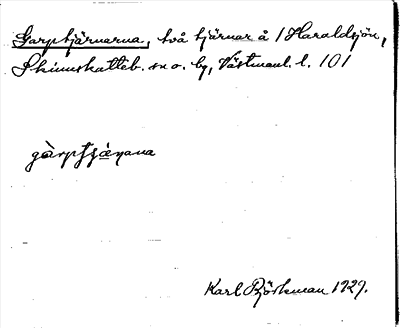 Garptjärnarna, två tjärnar å 1 Haraldsjön,
Skinnskatteb. sn o. by, Västmanl. l. 101
gàrptjäṇana
Karl Björkman 1929.